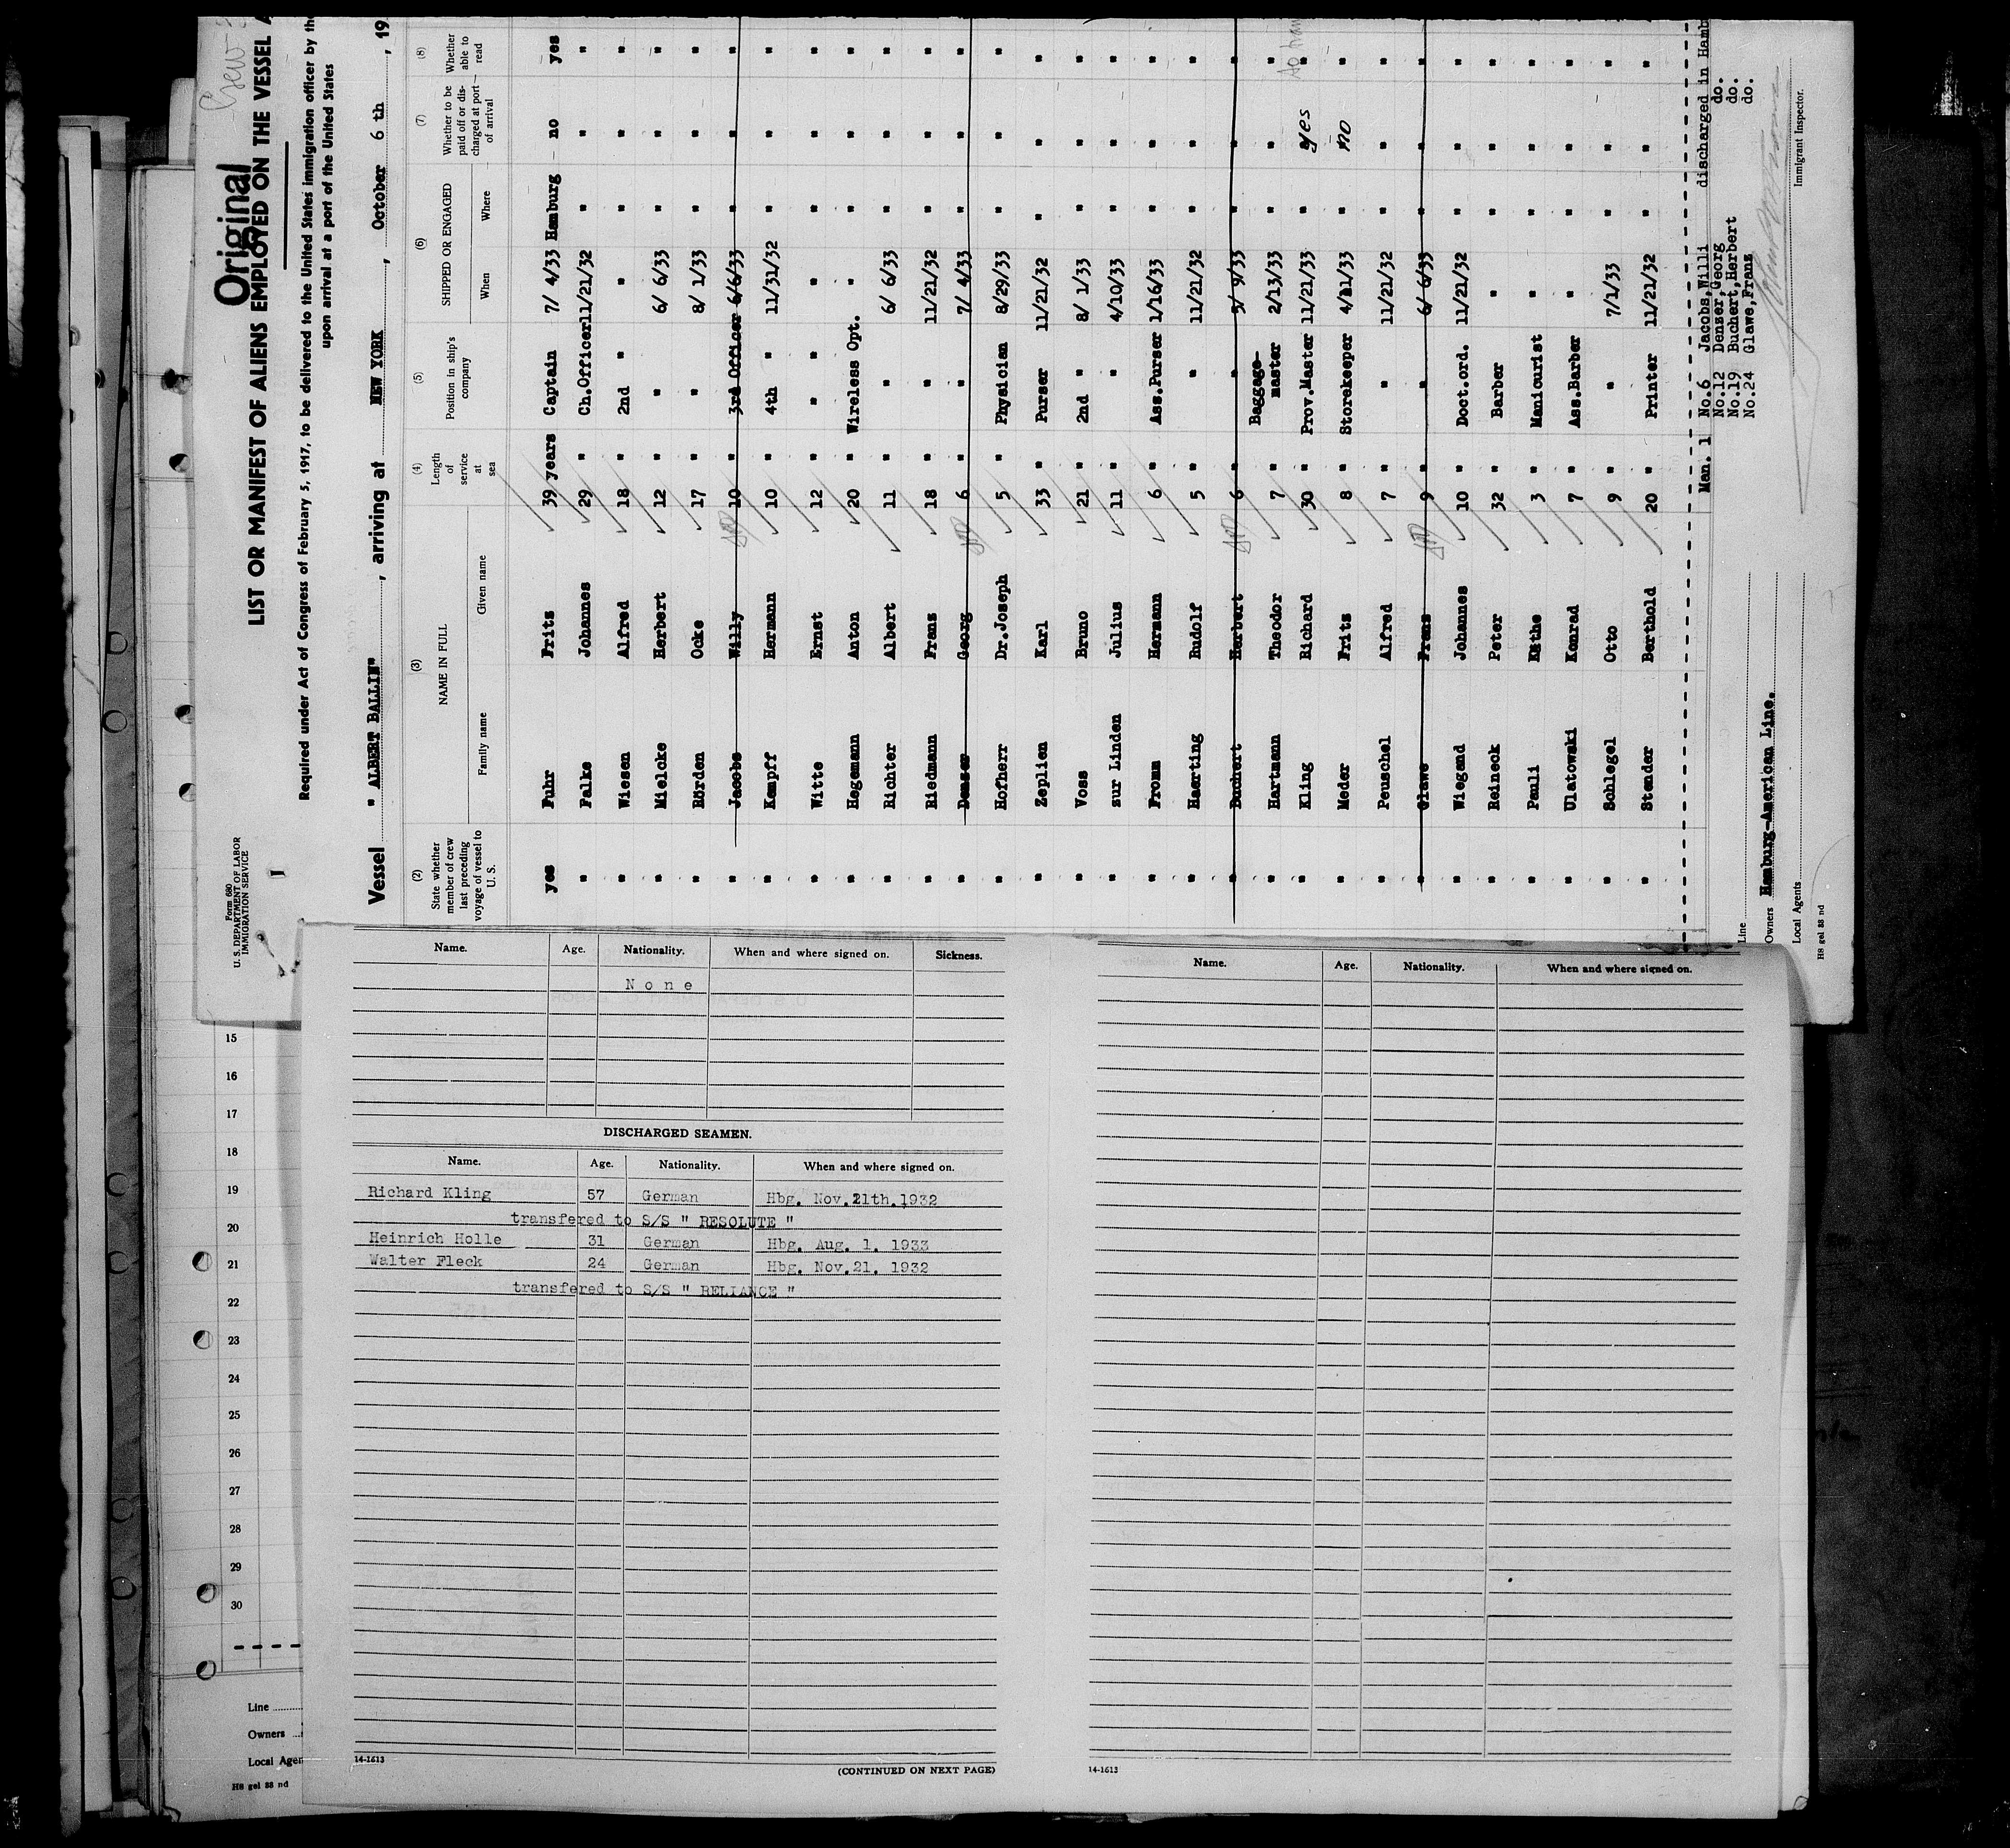 Original
LIST OR MANIFEST OF ALIENS EMPLOYED ON THE VESSEL
Required under Act of Congress of February 5, 1917, to be delivered to the United States immigration officer by the
upon arrival at a port of the United States
Form 680
U. S. DEPARTMENT OF LABOR
IMMIGRATION SERVICE
Vessel " ALBERT BALLIN" , arriving at NEW YORK , October 6 th , 19
(2) (3) (4) (5) (6) (7) (8)
State whether member of crew last preceding voyage of vessel to U. S. NAME IN FULL Family name Given name Length of service at sea Position in ship's company SHIPPED OR ENGAGED When Where Whether to be paid off or discharged at port of arrival Whether able to read
yes Fuhr Fritz 39 years Captain 7/ 4/33 Hamburg no yes
" Falke Johannes 29 " Ch.Officer 11/21/32 " " "
" Wiesen Alfred 18 " 2nd " " " " "
" Mielcke Herbert 12 " " 6/ 6/33 " " "
" Rörden Ocke 17 " " 8/ 1/33 " " "
" Jacobs Willy 10 " 3rd Officer 6/6/33 " " "
" Kempff Hermann 10 " 4th " 11/31/32 " " "
" Witte Ernst 12 " " " " " "
" Hagemann Anton 20 " Wireless Opt. " " " "
" Richter Albert 11 " " 6/ 6/33 " " "
" Riedmann Franz 18 " " 11/21/32 " " "
" Denzer Georg 6 " " 7/ 4/33 " " "
" Hofherr Dr.Joseph 5 " Physician 8/29/33 " " "
" Zeplien Karl 33 " Purser 11/21/32 " " "
" Voss Bruno 21 " 2nd " 8/ 1/33 " " "
" zur Linden Julius 11 " " 4/10/33 " " "
" Fromm Hermann 6 " Ass.Purser 1/16/33 " " "
" Haerting Rudolf 5 " " 11/21/32 " " "
" Buchert Herbert 6 " " 5/ 9/33 " " "
" Hartmann Theodor 7 " Baggage-master 2/13/33 " " "
" Kling Richard 30 " Prov.Master 11/21/33 " yes "
" Meder Fritz 8 " Storekeeper 4/21/33 " no "
" Peuschel Alfred 7 " " 11/21/32 " " "
" Glawe Franz 9 " " 6/ 6/33 " " "
" Wiegand Johannes 10 " Doct.ord. 11/21/32 " " "
" Reineck Peter 32 " Barber " " " "
" Pauli Käthe 3 " Manicurist " " " "
" Ulatowski Konrad 7 " Ass.Barber " " " "
" Schlegel Otto 9 " " 7/1/33 " " "
" Stender Berthold 20 " Printer 11/21/32 " " "
Man. 1 No.6 Jacobs,Willi discharged in Hamb
No.12 Denzer,Georg do.
No.19 Buchert,Herbert do.
No.24 Glawe,Franz do.
Line
Owners Hamburg-American Line.
Local Agents
Immigrant Inspector.
H8 gel 88 nd
Name. Age. Nationality. When and where signed on. Sickness.
None
DISCHARGED SEAMEN.
Name. Age. Nationality. When and where signed on.
Richard Kling 57 German Hbg. Nov.21th.1932
transfered to S/S " RESOLUTE "
Heinrich Holle 31 German Hbg. Aug. 1. 1933
Walter Fleck 24 German Hbg. Nov.21. 1932
transfered to S/S " RELIANCE "
14-1613
(CONTINUED ON NEXT PAGE)
Name. Age. Nationality. When and where signed on.
14-1613
15
16
17
18
19
20
21
22
23
24
25
26
27
28
29
30
Line
Owners
Local Agen
H8 gel 88 nd